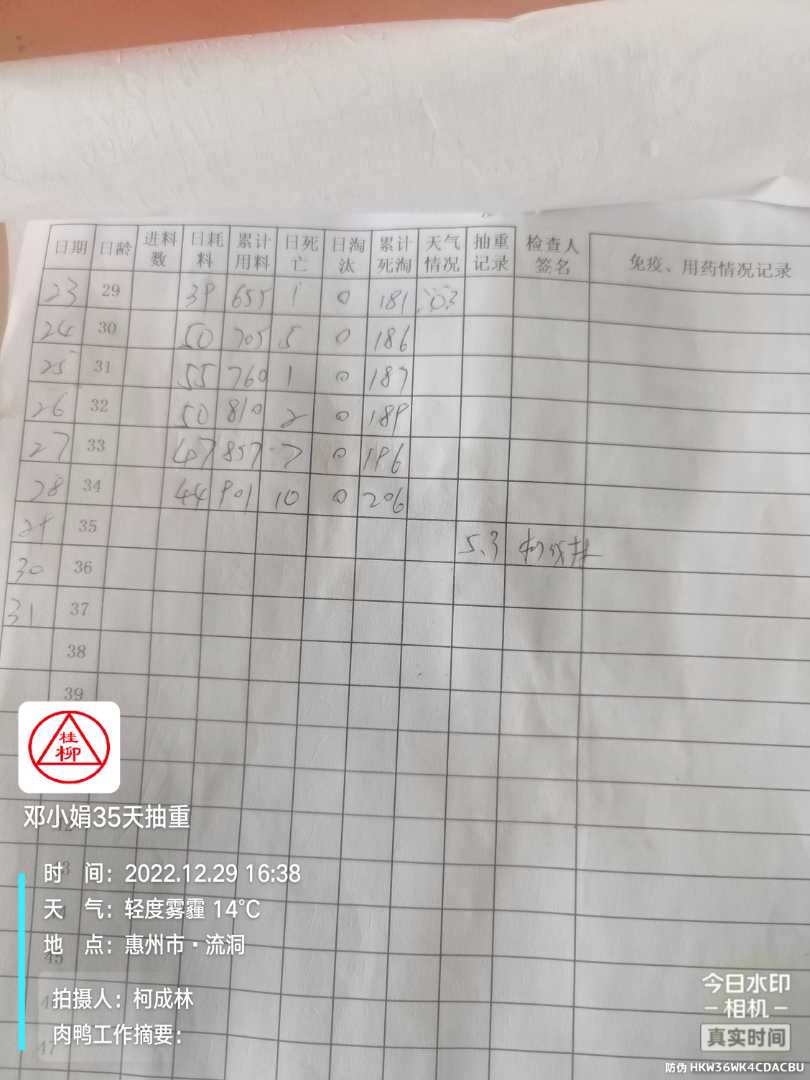 日期 日龄 进料数 日耗料 累计用料 日死亡 日淘汰 累计死淘 天气情况 抽重记录 检查人签名 免疫、用药情况记录
23 29 39 655 1 0 181
24 30 50 705 5 0 186
25 31 55 760 1 0 187
26 32 50 810 2 0 189
27 33 47 857 7 0 196
28 34 44 901 10 0 206
29 35 5.3 柯成林
30 36
31 37
38
39
桂
柳
邓小娟35天抽重
时 间：2022.12.29 16:38
天 气：轻度雾霾 14℃
地 点：惠州市·流洞
拍摄人：柯成林
肉鸭工作摘要：
47
今日水印
相机
真实时间
防伪 HKW36WK4CDACBU